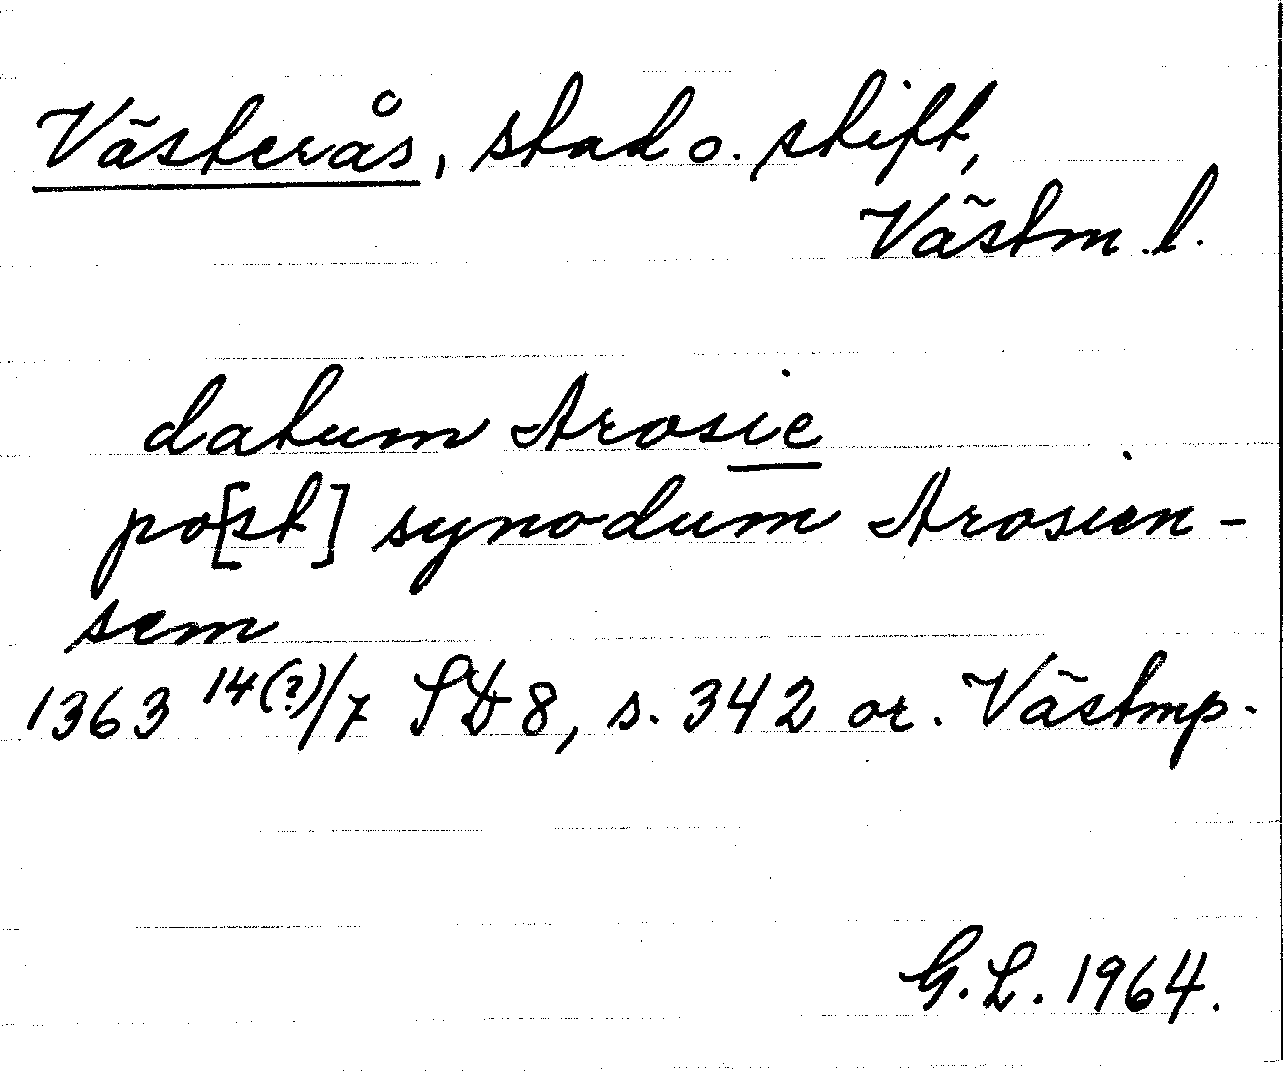 Västerås, stad o. stift,
Västm. l.
datum Arosie
po[st] synodum Arosien-
sem
1363 14(?)/7 SD 8, s. 342 or. Västmp.
G. L. 1964.